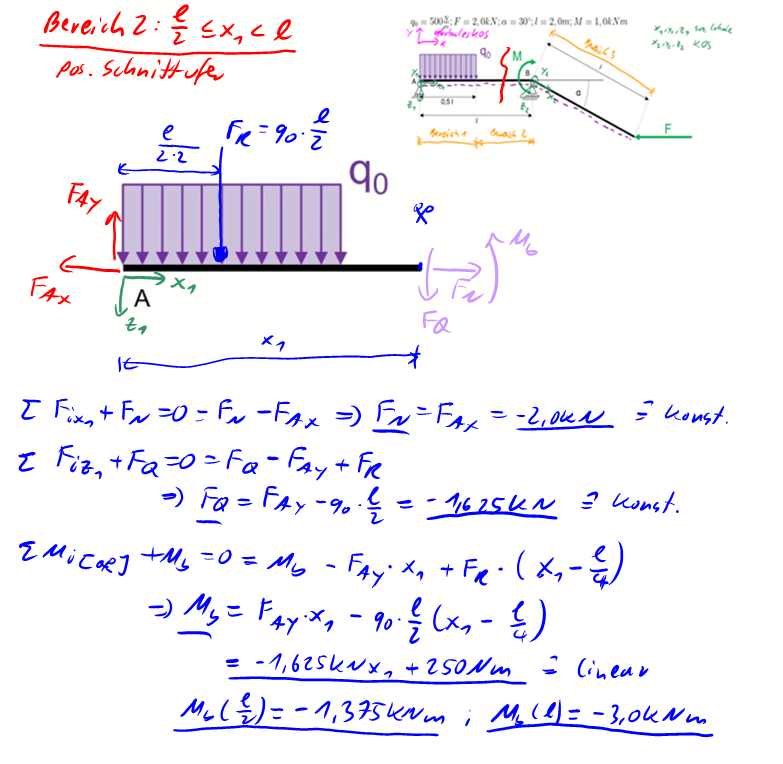 Bereich 2: l/2 ≤ x₁ < l
pos. Schnittufer
q₀ = 500 N/m; F = 2,0kN; α = 30°; l = 2,0m; M = 1,0kNm
x₂, y₂, z₂ KOS
y
x
q₀
M
A
B
y₂
x₂
z₂
z₁
α
l
0,5 l
l
F
Bereich 1
Bereich 2
Bereich 3
l/(2·2)
F_R = q₀ · l/2
q₀
F_Ay
F_Ax
A
x₁
z₁
M_b
F_N
F_Q
x₁
Σ F_ix₁ + F_N = 0 = F_N - F_Ax ⇒ F_N = F_Ax = -2,0kN ≙ konst.
Σ F_iz₁ + F_Q = 0 = F_Q - F_Ay + F_R
⇒ F_Q = F_Ay - q₀ · l/2 = -1,625kN ≙ konst.
+ M_b = 0 = M_b - F_Ay · x₁ + F_R · (x₁ - l/4)
⇒ M_b = F_Ay · x₁ - q₀ · l/2 (x₁ - l/4)
= -1,625kN x₁ + 250Nm ≙ linear
M_b(l/2) = -1,375kNm ; M_b(l) = -3,0kNm